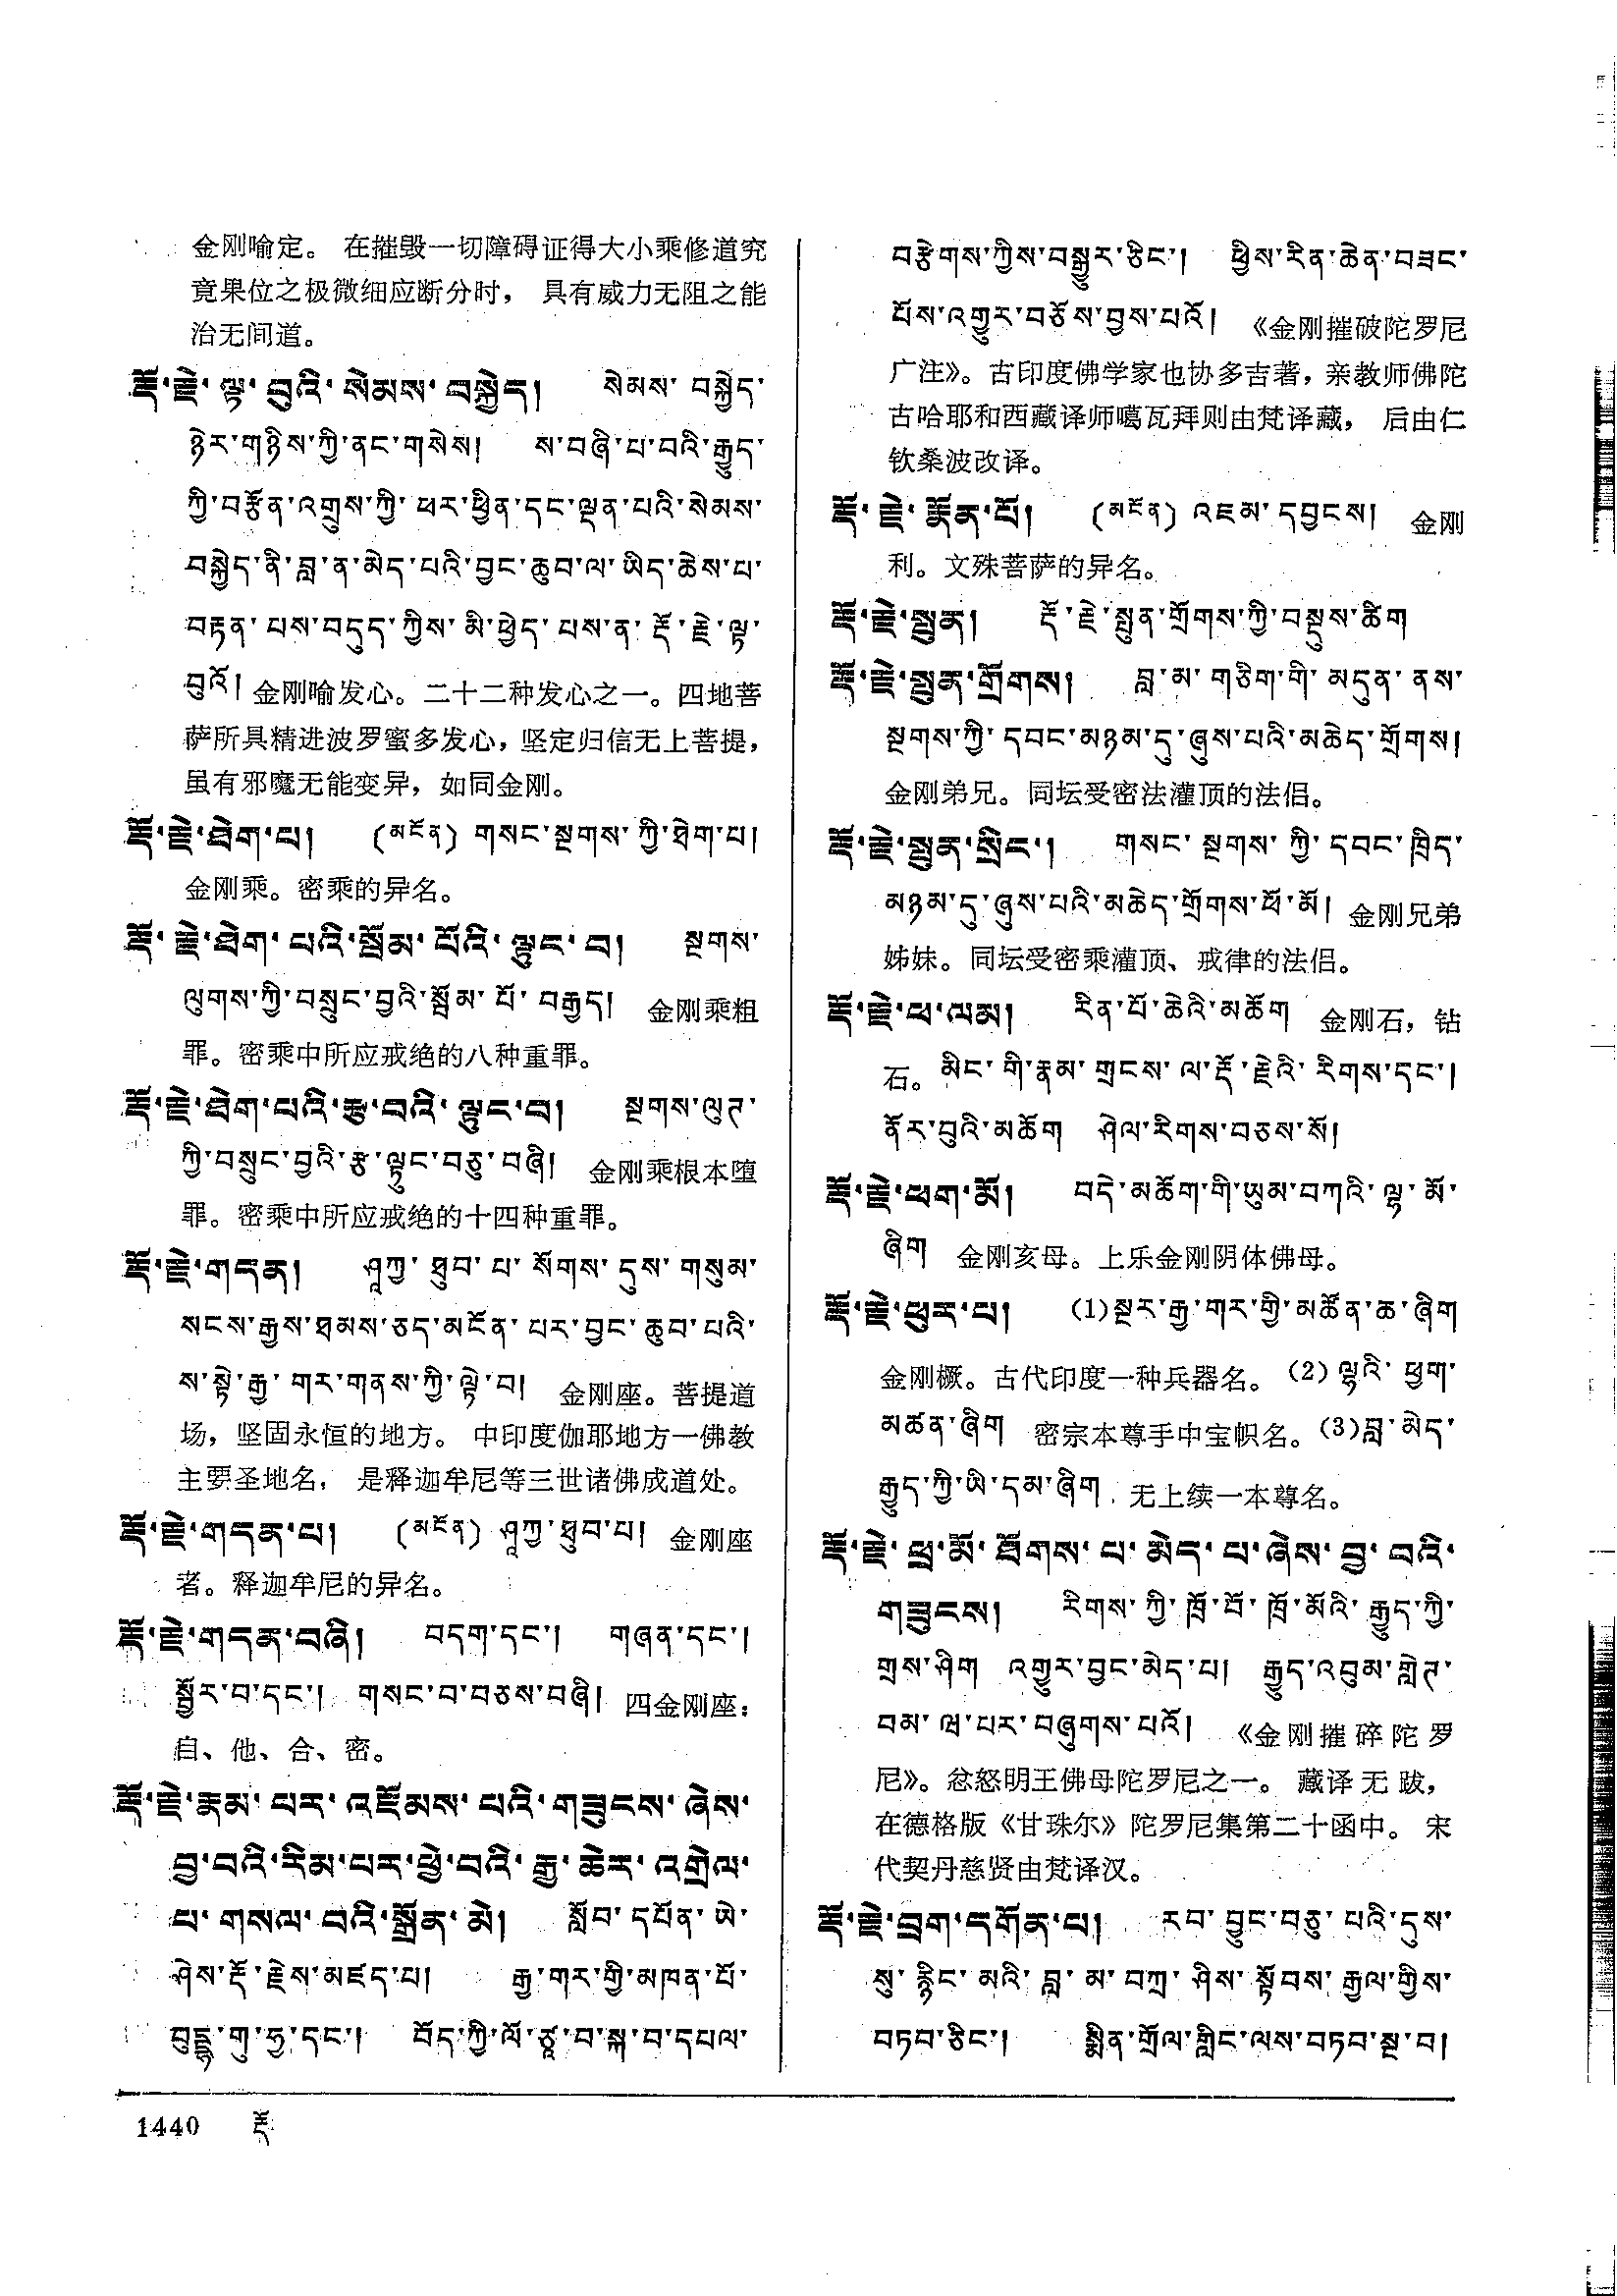 金刚喻定。 在摧毁一切障碍证得大小乘修道究
竟果位之极微细应断分时， 具有威力无阻之能
治无间道。
རྡོ་རྗེ་ལྟ་བུའི་སེམས་བསྐྱེད། སེམས་བསྐྱེད་
ཉེར་གཉིས་ཀྱི་ནང་གསེས། ས་བཞི་པ་བའི་རྒྱུད་
ཀྱི་བརྩོན་འགྲུས་ཀྱི་ཕར་ཕྱིན་དང་ལྡན་པའི་སེམས་
བསྐྱེད་ནི་བླ་ན་མེད་པའི་བྱང་ཆུབ་ལ་ཡིད་ཆེས་པ་
བརྟན་པས་བདུད་ཀྱིས་མི་ཕྱེད་པས་ན་རྡོ་རྗེ་ལྟ་
བུའོ། 金刚喻发心。二十二种发心之一。四地菩
萨所具精进波罗蜜多发心，坚定归信无上菩提，
虽有邪魔无能变异，如同金刚。
རྡོ་རྗེ་ཐེག་པ། (མངོན) གསང་སྔགས་ཀྱི་ཐེག་པ།
金刚乘。密乘的异名。
རྡོ་རྗེ་ཐེག་པའི་སྦོམ་པོའི་ལྟུང་བ། སྔགས་
ལུགས་ཀྱི་བསྲུང་བྱའི་སྦོམ་པོ་བརྒྱད། 金刚乘粗
罪。密乘中所应戒绝的八种重罪。
རྡོ་རྗེ་ཐེག་པའི་རྩ་བའི་ལྟུང་བ། སྔགས་ལུཊ་
ཀྱི་བསྲུང་བྱའི་རྩ་ལྟུང་བཅུ་བཞི། 金刚乘根本堕
罪。密乘中所应戒绝的十四种重罪。
རྡོ་རྗེ་གདན། ཤཱཀྱ་ཐུབ་པ་སོགས་དུས་གསུམ་
སངས་རྒྱས་ཐམས་ཅད་མངོན་པར་བྱང་ཆུབ་པའི་
ས་སྟེ་རྒྱ་གར་གནས་ཀྱི་ལྟེ་བ། 金刚座。菩提道
场，坚固永恒的地方。 中印度伽耶地方一佛教
主要圣地名， 是释迦牟尼等三世诸佛成道处。
རྡོ་རྗེ་གདན་པ། (མངོན) ཤཱཀྱ་ཐུབ་པ། 金刚座
者。释迦牟尼的异名。
རྡོ་རྗེ་གདན་བཞི། བདག་དང་། གཞན་དང་།
སྦྱོར་བ་དང་། གསང་བ་བཅས་བཞི། 四金刚座：
自、他、合、密。
རྡོ་རྗེ་རྣམ་པར་འཇོམས་པའི་གཟུངས་ཞེས་
བྱ་བའི་རིམ་པར་ཕྱེ་བའི་རྒྱ་ཆེར་འགྲེལ་
པ་གསལ་བའི་སྒྲོན་མེ། སློབ་དཔོན་ཨེ་
ཤེས་རྡོ་རྗེས་མཛད་པ། རྒྱ་གར་གྱི་མཁན་པོ་
བུདྡྷ་གུ་ཧྱ་དང་། བོད་ཀྱི་ལོ་ཙཱ་བ་སྐ་བ་དཔལ་
བརྩེགས་ཀྱིས་བསྒྱུར་ཅིང་། ཕྱིས་རིན་ཆེན་བཟང་
པོས་འགྱུར་བཅོས་བྱས་པའོ། 《金刚摧破陀罗尼
广注》。古印度佛学家也协多吉著，亲教师佛陀
古哈耶和西藏译师噶瓦拜则由梵译藏， 后由仁
钦桑波改译。
རྡོ་རྗེ་རྣོན་པོ། (མངོན) འཇམ་དབྱངས། 金刚
利。文殊菩萨的异名。
རྡོ་རྗེ་སྤུན། རྡོ་རྗེ་སྤུན་གྲོགས་ཀྱི་བསྡུས་ཚིག
རྡོ་རྗེ་སྤུན་གྲོགས། བླ་མ་གཅིག་གི་མདུན་ནས་
སྔགས་ཀྱི་དབང་མཉམ་དུ་ཞུས་པའི་མཆེད་གྲོགས།
金刚弟兄。同坛受密法灌顶的法侣。
རྡོ་རྗེ་སྤུན་སྲིང་། གསང་སྔགས་ཀྱི་དབང་ཁྲིད་
མཉམ་དུ་ཞུས་པའི་མཆེད་གྲོགས་ཕོ་མོ། 金刚兄弟
姊妹。同坛受密乘灌顶、戒律的法侣。
རྡོ་རྗེ་ཕ་ལམ། རིན་པོ་ཆེའི་མཆོག 金刚石，钻
石。མིང་གི་རྣམ་གྲངས་ལ་རྡོ་རྗེའི་རིགས་དང་།
ནོར་བུའི་མཆོག ཤེལ་རིགས་བཅས་སོ།
རྡོ་རྗེ་ཕག་མོ། བདེ་མཆོག་གི་ཡུམ་བཀའི་ལྷ་མོ་
ཞིག 金刚亥母。上乐金刚阴体佛母。
རྡོ་རྗེ་ཕུར་པ། (1)སྔར་རྒྱ་གར་གྱི་མཚོན་ཆ་ཞིག
金刚橛。古代印度一种兵器名。(2)ལྷའི་ཕྱག་
མཚན་ཞིག 密宗本尊手中宝帜名。(3)བླ་མེད་
རྒྱུད་ཀྱི་ཡི་དམ་ཞིག 无上续一本尊名。
རྡོ་རྗེ་ཕྲ་མོ་ཐོགས་པ་མེད་པ་ཞེས་བྱ་བའི་
གཟུངས། རིགས་ཀྱི་ཁྲོ་བོ་ཁྲོ་མོའི་རྒྱུད་ཀྱི་
གྲས་ཤིག འགྱུར་བྱང་མེད་པ། རྒྱུད་འབུམ་གླེཊ་
བམ་ཝ་པར་བཞུགས་པའོ། 《金刚摧碎陀罗
尼》。忿怒明王佛母陀罗尼之一。 藏译无跋，
在德格版《甘珠尔》陀罗尼集第二十函中。 宋
代契丹慈贤由梵译汉。
རྡོ་རྗེ་བྲག་དགོན་པ། རབ་བྱུང་བཅུ་པའི་དུས་
སུ་རྙིང་མའི་བླ་མ་བཀྲ་ཤིས་སྟོབས་རྒྱལ་གྱིས་
བཏབ་ཅིང་། སྨིན་གྲོལ་གླིང་ལས་བཏབ་སྔ་བ།
1440 རྡོ